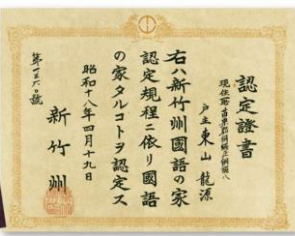 認定證書
戸主東山龍源
右ハ新竹州國語の家
認定規程ニ依リ國語
の家タルコトヲ認定ス
昭和十八年四月十九日
新竹州